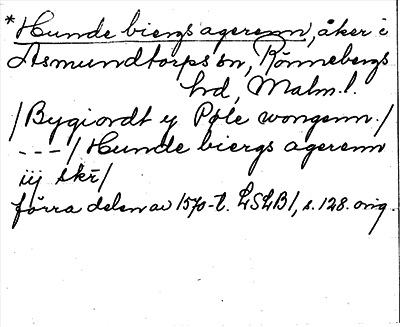 * Hunde biergs agerenn, åker i
Asmundtorps sn, Rönnebergs
hd, Malm.l.
/Bygiordt y Pøle wongenn./
---/Hunde biergs agerenn
iij skr/
förra delen av 1570-t. LSLB1, s. 128. orig.